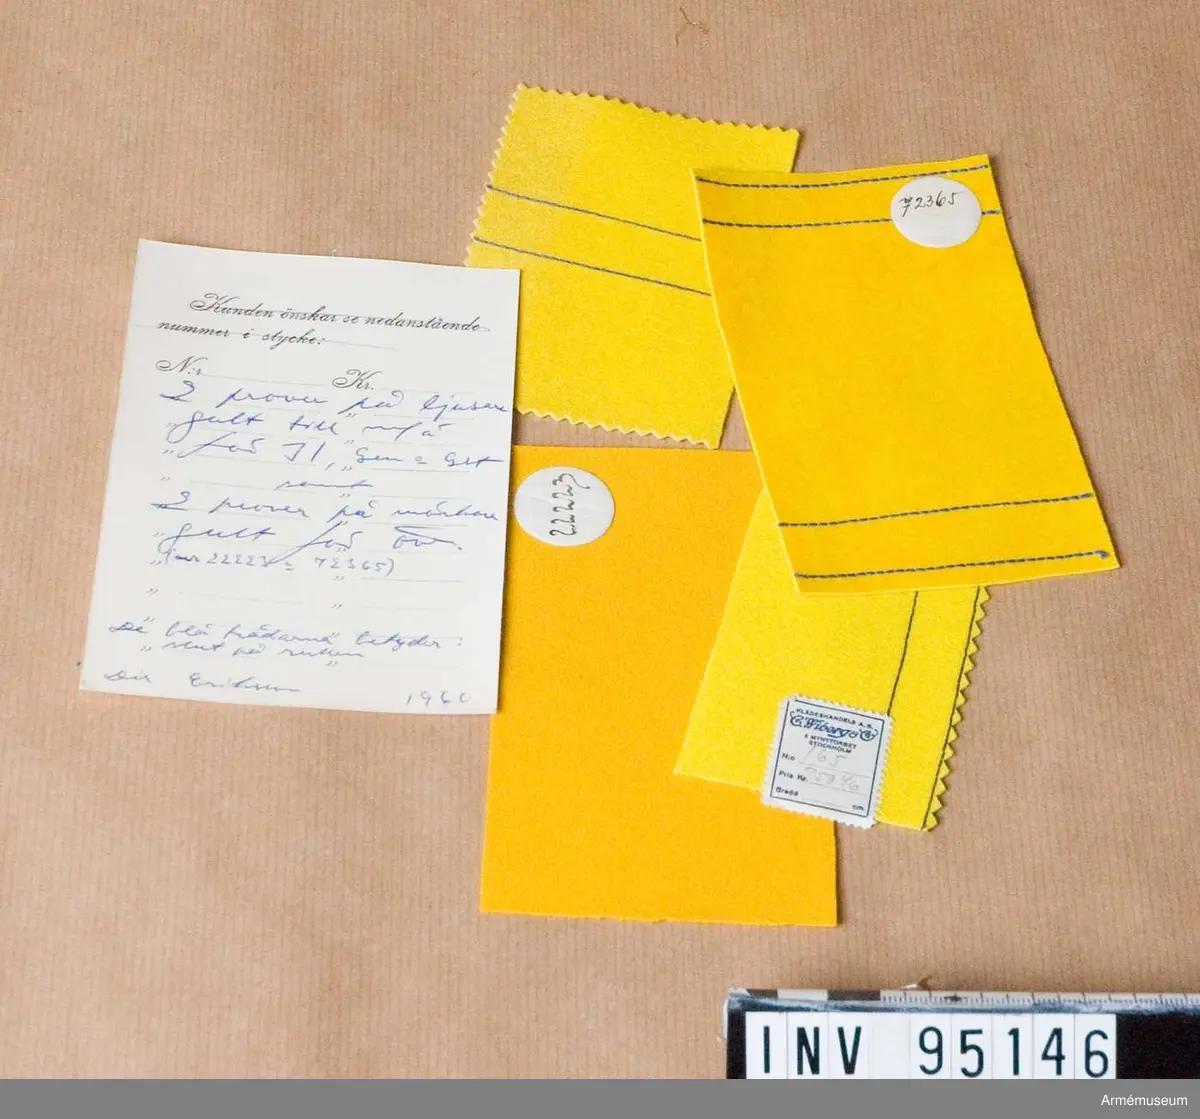 Kunden önskar se nedanstående
nummer i stycke:
N:r Kr.
2 prover på ljusare
gult till m/ä
för I1,
samt
2 prover på mörkare
gult för
(nr 22223 = 72365)
De blå trådarna betyder:
slut på rullen
Dir Eriksson 1960
72365
22223
KLÄDESHANDELS A.B.
C. Wiberg & Co
4 MYNTTORGET
STOCKHOLM
N:o 165
Pris Kr.
Bredd cm
INV 95146
Armémuseum